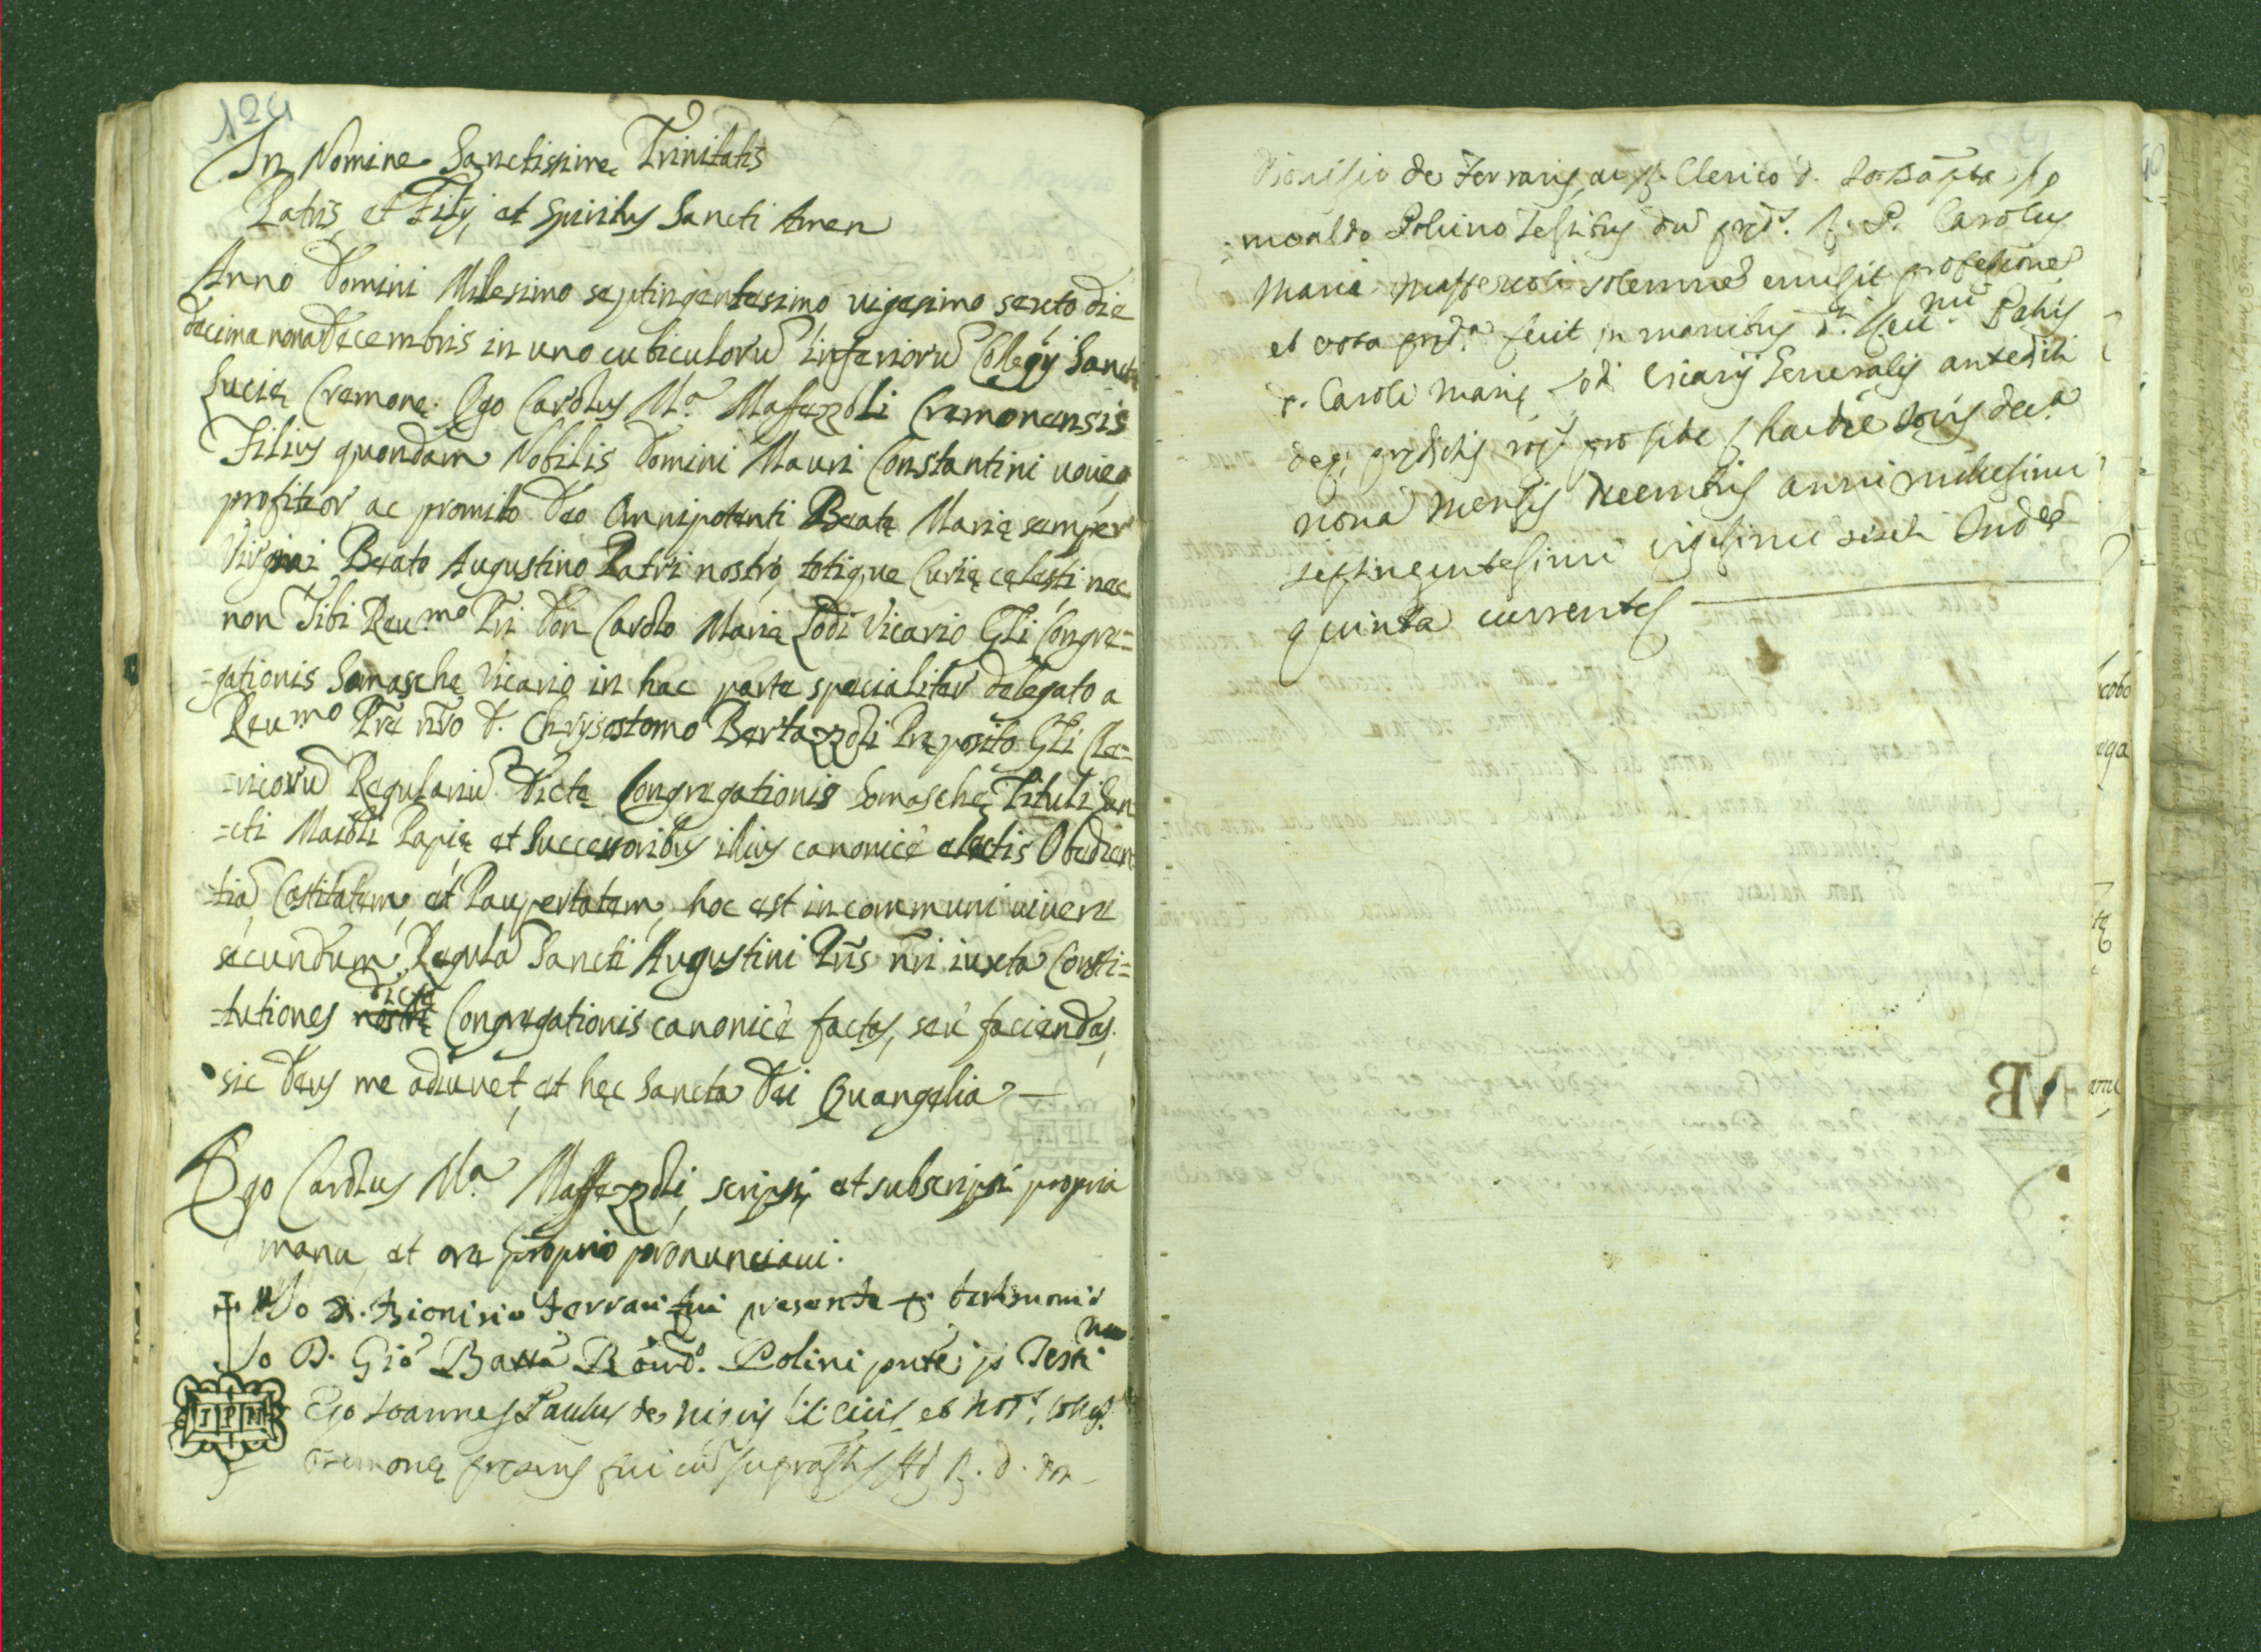 124
In Nomine Sanctissimę Trinitatis
Patris, et Filÿ, et Spiritus Sancti Amen
Anno Domini Milesimo septingentesimo vigesimo sexto die
decima nona Decembris in uno cubiculorũ inferiorũ Collegÿ Sanctę
Lucię Cremonę. Ego Carolus Mª Maffezzoli Cremonensis
Filius quondam Nobilis Domini Mauri Constantini voveo
profiteor ac promito Deo Omnipotenti Beatę Marię semper
Virgini Beato Augustino Patri nostro, totique Curię cęlesti nec
non Tibi Reu.mo Pri Don Carolo Marię Lodi Vicario Gli Congre=
=gationis Somaschę Vicario in hac parte specialiter delegato a
Reu.mo Pre nro D. Chrysostomo Bertazzoli Pręposito Gli Cle=
=ricorũ Regulariũ Dictę Congregationis Somaschę Tituli San
=cti Maioli Papię et Successoribus illius canonicè electis Obedien
tiã, Castitatem, et Paupertatem, hoc est in communi vivere
secundum Regulã Sancti Augustini Pris nri iuxta Consti=
=tutiones nostrę dictę Congregationis canonicè factas, seù faciendas.
sic Deus me adiuvet, et hęc Sancta Dei Evangelia
Ego Carolus Mª Maffezzoli, scripsi, et subscripsi propria
manu, et ore proprio pronunciavi.
Io D. Dionisio Ferrari fui presente p testimonio
Io D. Gio Batta Polini pnte p Testi.no
IPN
Ego Joannes Paulus de Nigris civis et Not.
Cremonę pręsens fui cũ suprasti Ad R. D. Don
Dionisio de Ferrarijs ac Clerico D. Jo: Bapta
=moaldo Polino Testibus dũ pręd. R. P. Carolus
Maria Maffezzoli solemne emisit professione
et vota pręd.a fecit in manibus D. Reu.mi Patris
D. Caroli Marię Lodi Vicarij Generalis antedicti
deq pręd
nona mensis Decembris anni millesimi
septingentesimi vigesimi sexti Ind.e
quinta currente